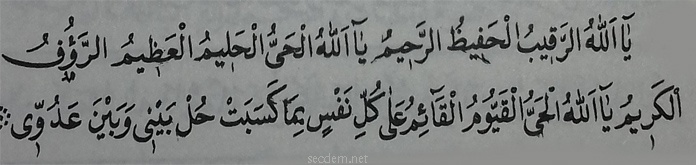 يَٓا اَللهُ الرَّقِيبُ الْحَفِيظُ الرَّحِيمُ يَٓا اَللهُ الْحَىُّ الْحَلِيمُ الْعَظِيمُ الرَّؤُفُ
اَلْكَرِيمُ يَٓا اَللهُ الْحَىُّ الْقَيُّومُ الْقَٓائِمُ عَلٰى كُلِّ نَفْسٍ بِمَا كَسَبَتْ حُلْ بَيْنِى وَبَيْنَ عَدُوِّى
secdem.net